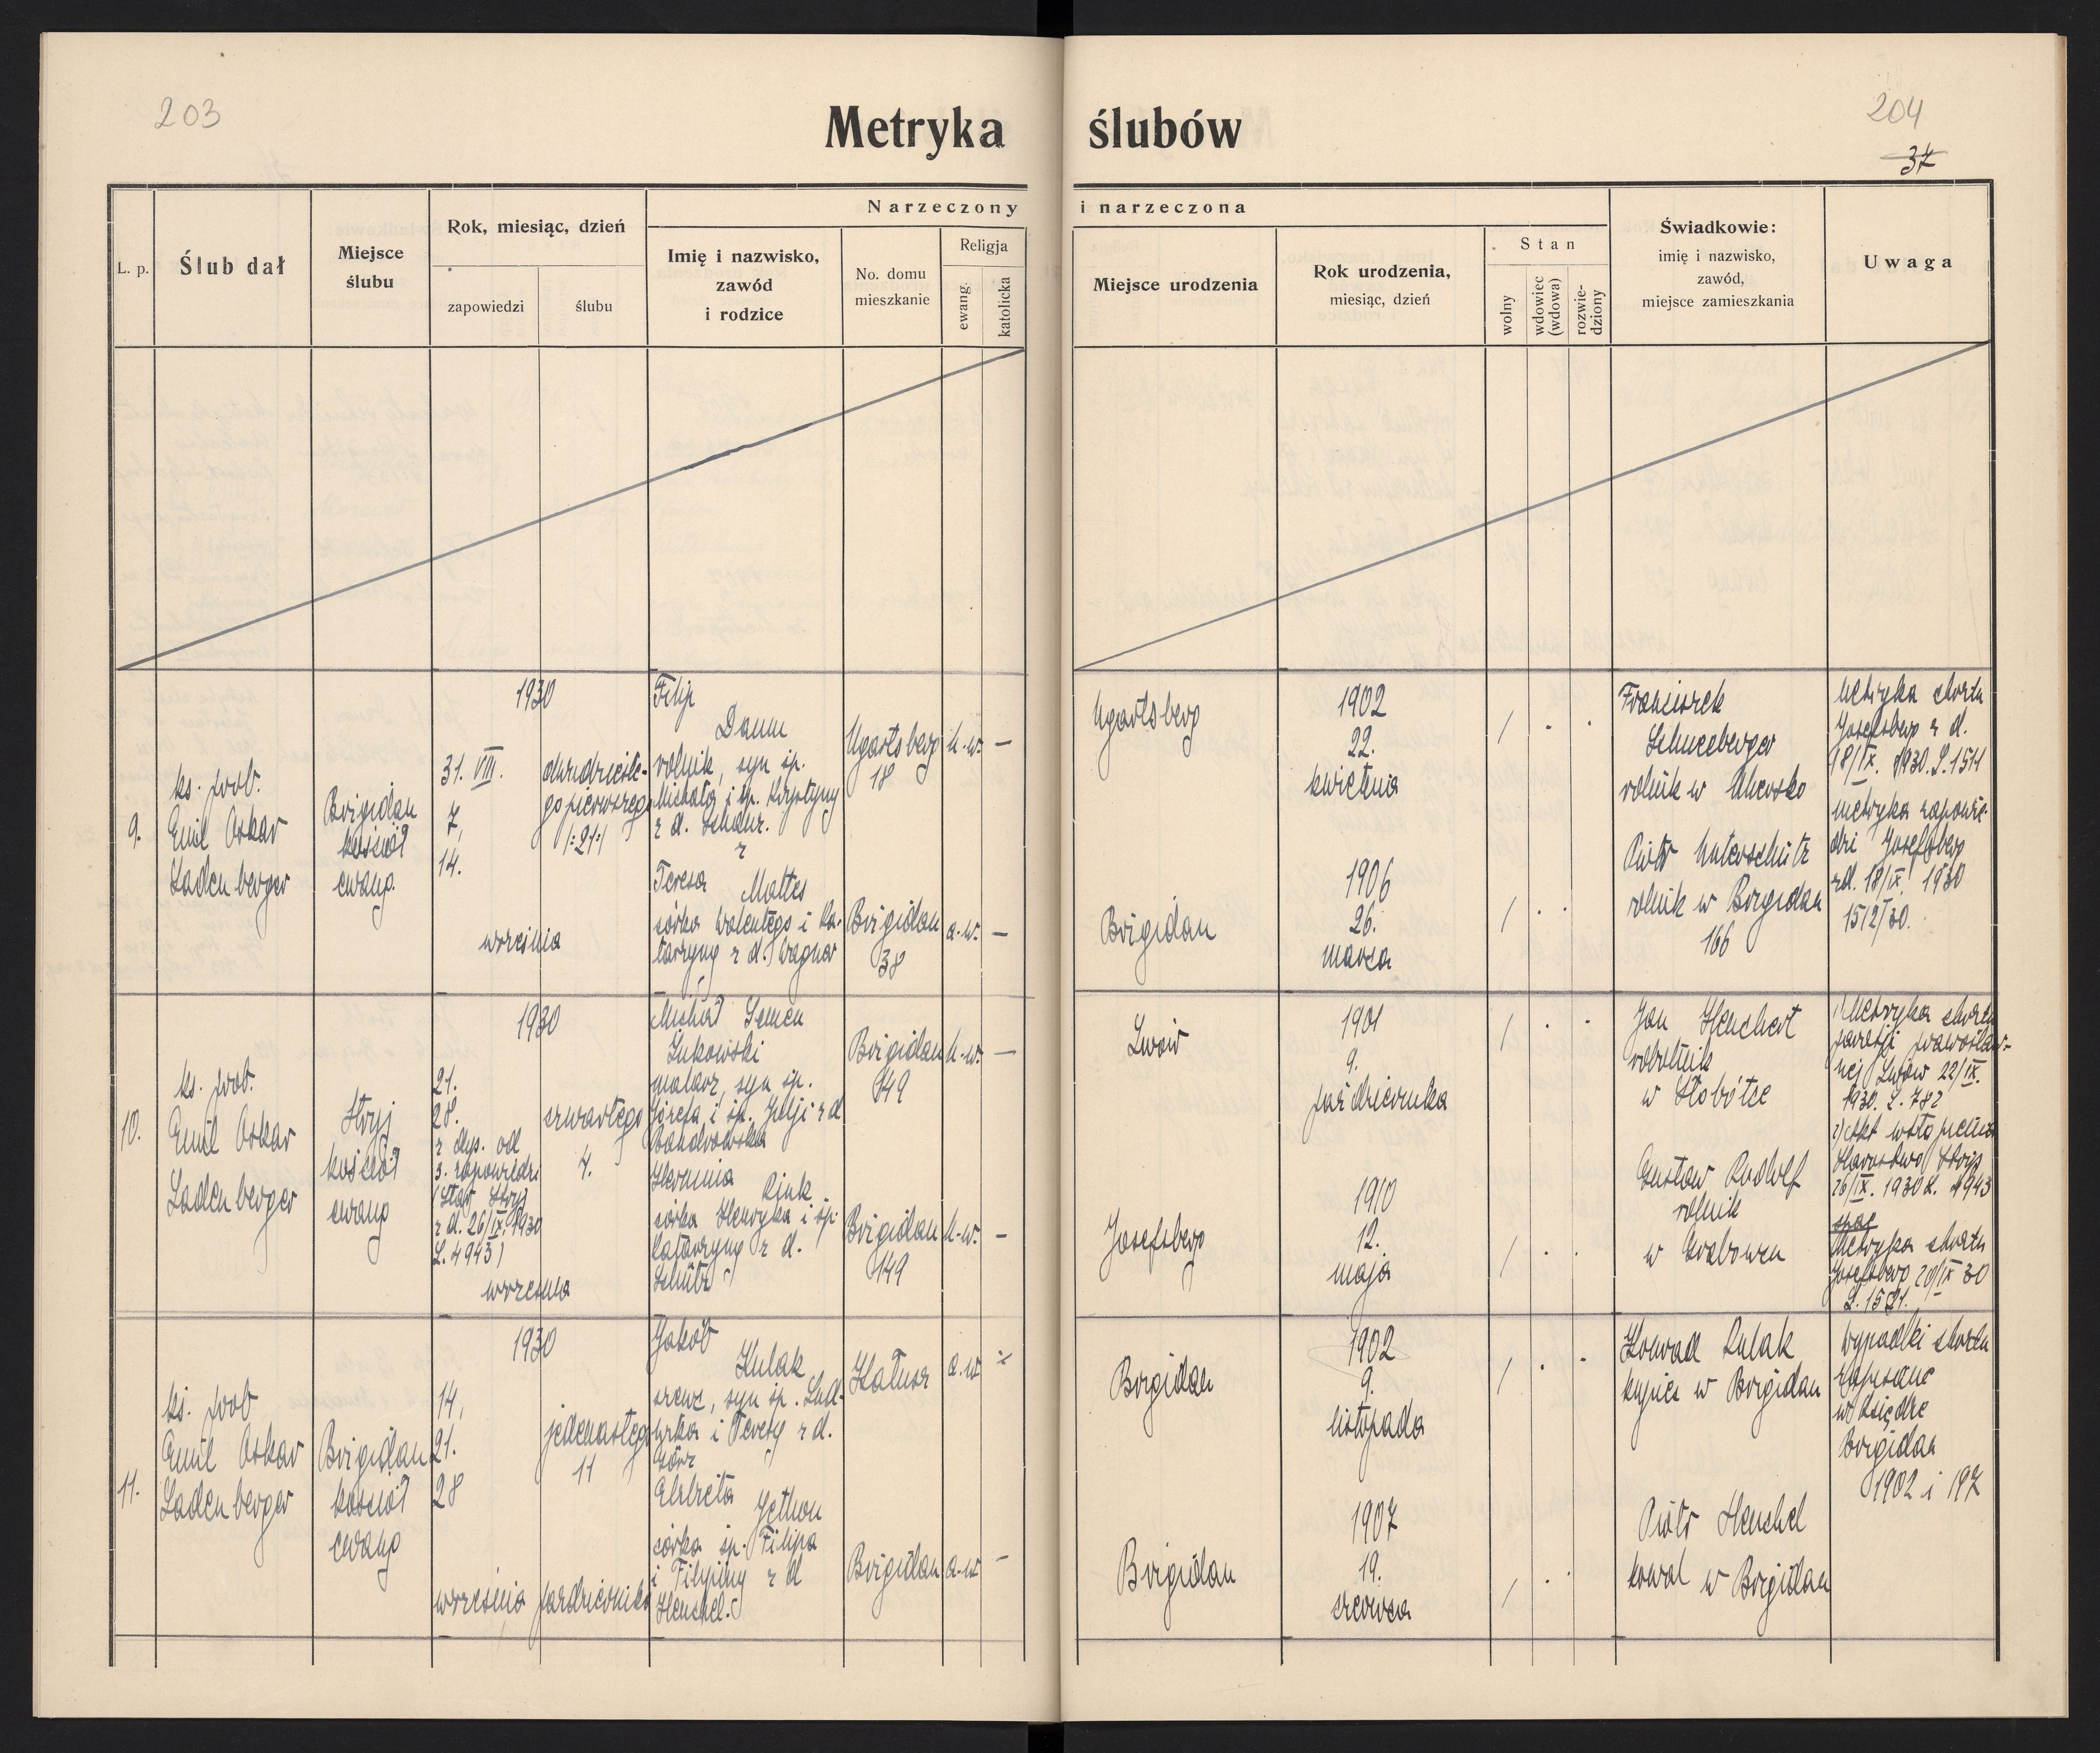 203
204
37
Metryka ślubów
L. p.
Ślub dał
Miejsce
ślubu
Rok, miesiąc, dzień
zapowiedzi
ślubu
Narzeczony i narzeczona
Imię i nazwisko,
zawód
i rodzice
No. domu
mieszkanie
Religja
ewang.
katolicka
Miejsce urodzenia
Rok urodzenia,
miesiąc, dzień
Stan
wolny
wdowiec
(wdowa)
rozwie-
dziony
Świadkowie:
imię i nazwisko,
zawód,
miejsce zamieszkania
Uwaga
9.
ks. prob.
Emil Oskar
Ladenberger
Brigidau
kościół
ewang.
1930
31. VIII.
7,
14.
września
dwudzieste-
go pierwszego
/:21:/
Filip
Daum
rolnik, syn śp.
Michała i śp. Krystyny
z d.
z
Teresa
Mattes
córka Walentego i Ka-
tarzyny z d. Wagner
Ugartsberg
18
h.-w.
—
Brigidau
38
a.-w.
—
Ugartsberg
1902
22.
kwietnia
/ . .
Brigidau
1906
26.
marca
/ . .
Franciszek
Schneeberger
rolnik w
Piotr Unterschütz
rolnik w Brigidau
166
Metryka chrztu
Josefsberg z d.
18/IX. 1930. L. 1511
metryka zapowie-
dzi Josefsberg
z d. 18/IX. 1930
1512/30.
10.
ks. prob.
Emil Oskar
Ladenberger
Stryj
kościół
ewang
1930
21.
28.
z dysp. od
3. zapowiedzi
(Star. Stryj
z d. 26/IX. 1930
L. 4943)
września
czwartego
4.
Michał Semen
Żukowski
malarz, syn śp.
Józefa i śp. Julji z d.
Hermina Rink
córka Henryka i śp.
Katarzyny z d.
Schütz
Brigidau
149
h.-w.
—
Brigidau
149
h.-w.
-
Lwów
1901
9.
października
/ . .
Josefsberg
1910
12.
maja
/ . .
Jan Henchert
robotnik
w Słobótce
Gustaw Rudolf
rolnik
w Grabowcu
1) Metryka chrztu
parafji prawosław-
nej Lwów 22/IX.
1930. L. 782
2) Akt wstąpienia
Starostwo Stryj
26/IX. 1930 L. 4943
Metryka chrztu
Josefsberg 20/IX 30
L. 1521.
11.
ks. prob
Emil Oskar
Ladenberger
Brigidau
kościół
ewang
1930
14,
21.
28
września
jedenastego
11
października
Jakób
Kulak
szewc, syn śp. Lud-
wika i Teresy z d.
Görz
Elżbieta
Jethon
córka śp. Filipa
i Filipiny z d
Henschel.
Kałusz
a.-w.
Brigidau
a.-w.
-
Brigidau
1902
9.
listopada
/ . .
Brigidau
1907
19.
czerwca
/ . .
Konrad Kulak
kupiec w Brigidau
Piotr Henschel
kowal w Brigidau
Wypadki chrztu
zapisane
w księdze
Brigidau
1902 i 197